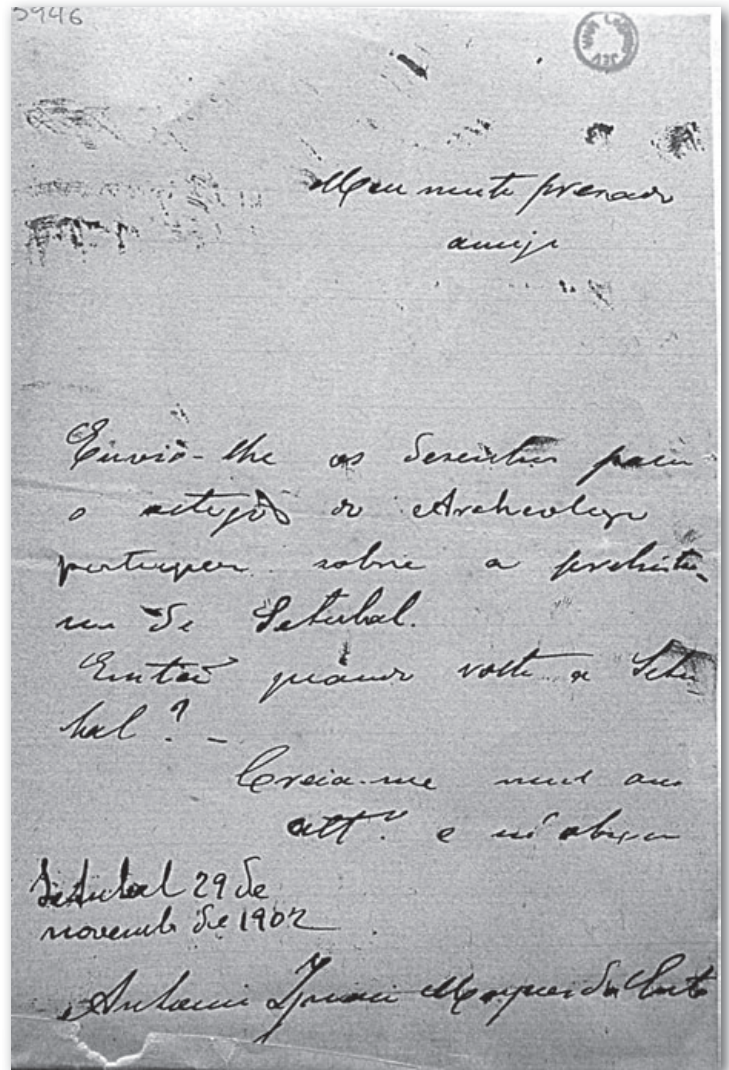 5946
Meu muito prezado
amigo
Envio-lhe os desenhos para
o artigo do Archeologo
portuguez sobre a prehisto-
ria de Setubal.
Então quando volta a Setu
bal? -
Creia-me
att.º e
Setubal 29 de
novembro de 1902
Antonio Ignacio Marques da Costa